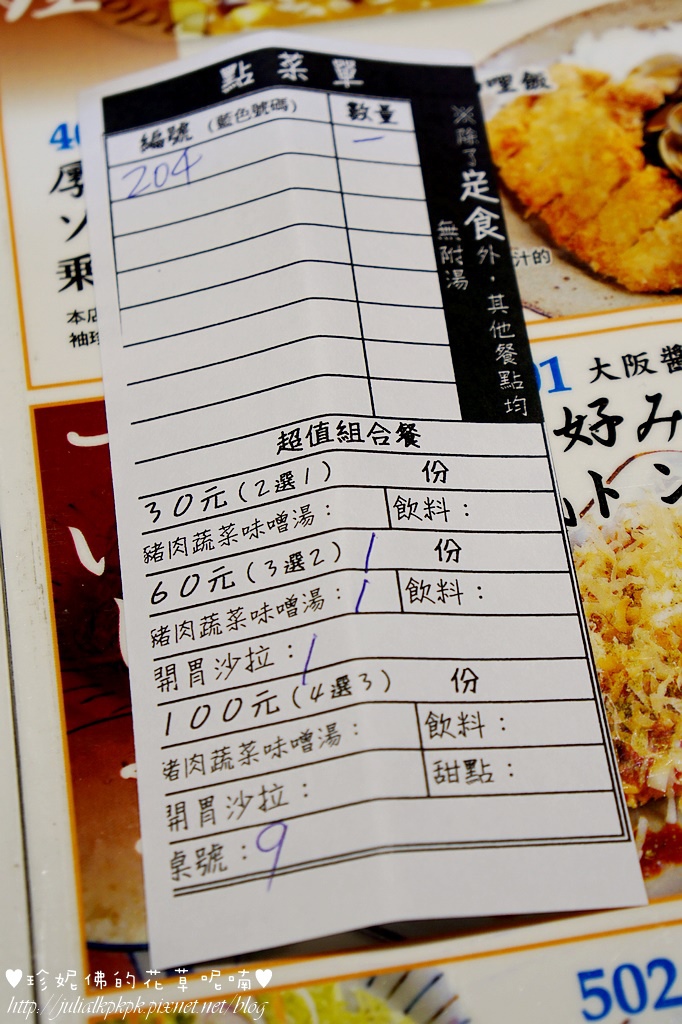 點菜單
編號 (藍色號碼) 數量
204 一
※除了定食外，其他餐點均
無附湯
超值組合餐
30元(2選1) 份
豬肉蔬菜味噌湯： 飲料：
60元(3選2) 1 份
豬肉蔬菜味噌湯：1 飲料：
開胃沙拉：1
100元(4選3) 份
豬肉蔬菜味噌湯： 飲料：
甜點：
開胃沙拉：
桌號：9
哩飯
汁的
40
厚
ソ
乗
本店
袖珍
01 大阪醬
好み
トン
い
502
♥珍妮佛的花草呢喃♥
http://julialkpkpk.pixnet.net/blog